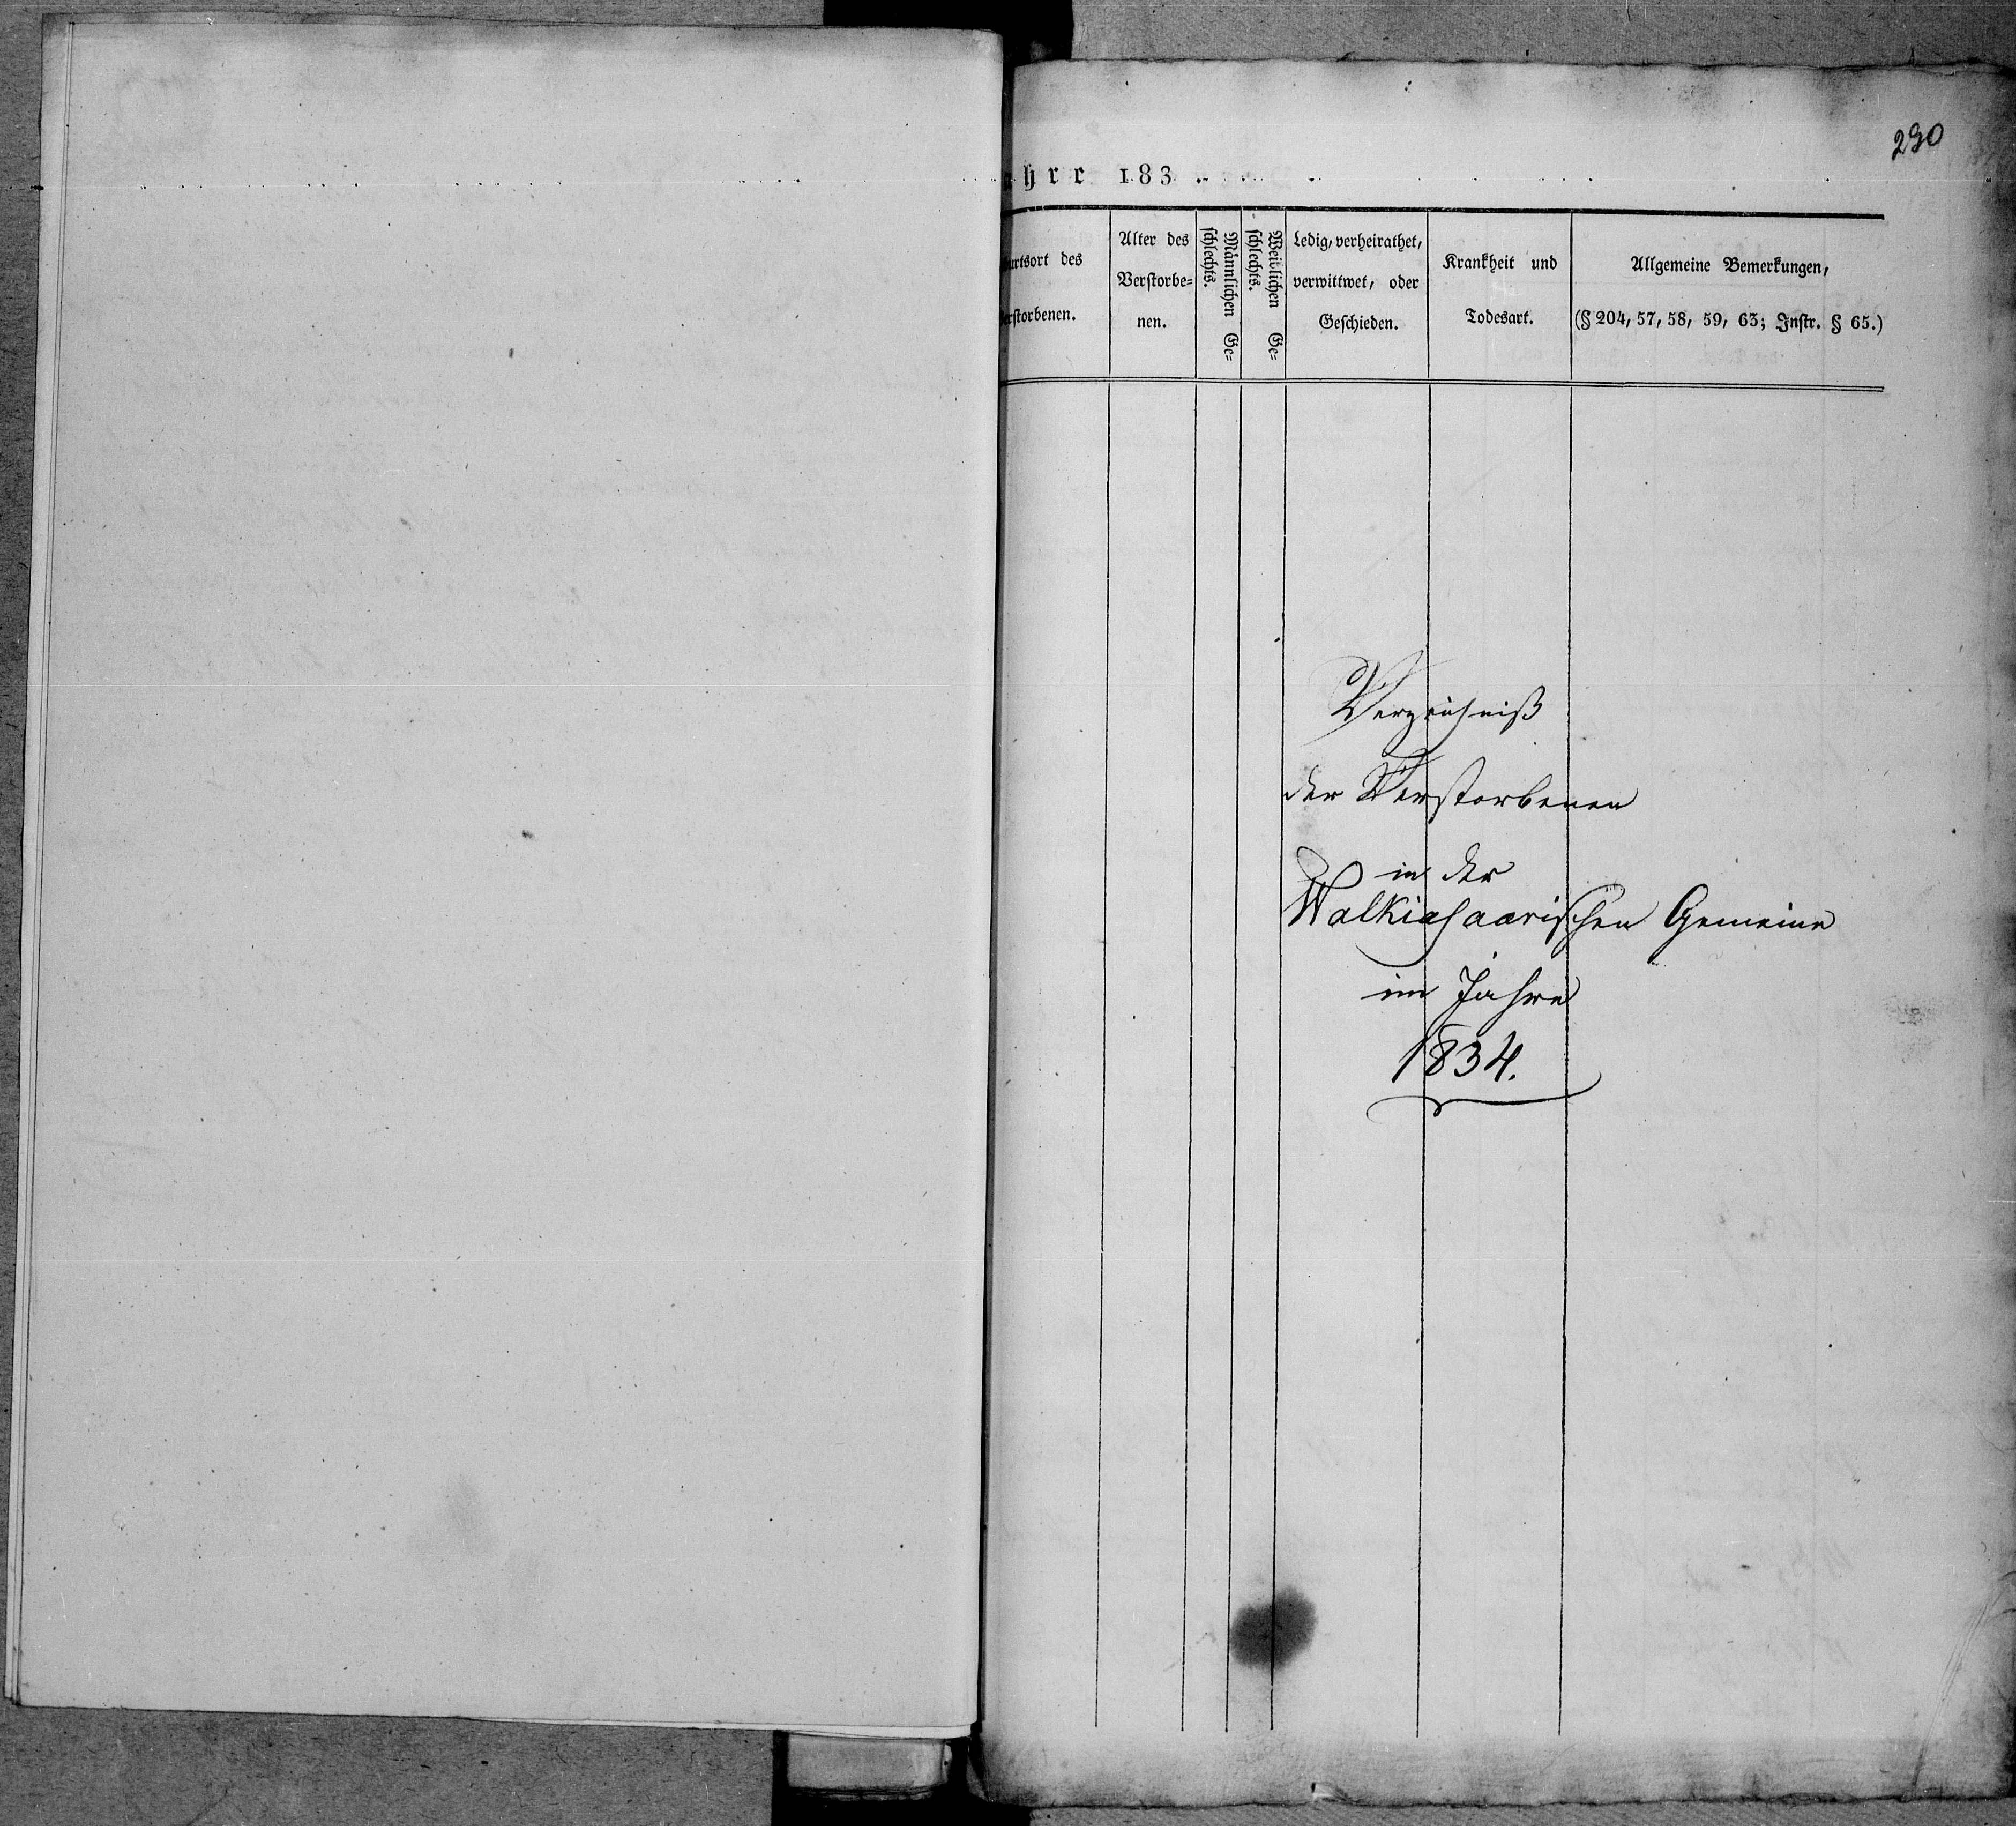 290
ahre 183
urtsort des
erstorbenen.
Alter des
Verstorbe=
nen.
Männlichen Ge=
schlechts.
Weiblichen Ge=
schlechts.
Ledig, verheirathet,
verwittwet, oder
Geschieden.
Krankheit und
Todesart.
Allgemeine Bemerkungen,
(§ 204, 57, 58, 59, 63; Instr. § 65.)
Verzeichniß
der Verstorbenen
in der
Walkiasaarischen Gemeine
im Jahre
1834.